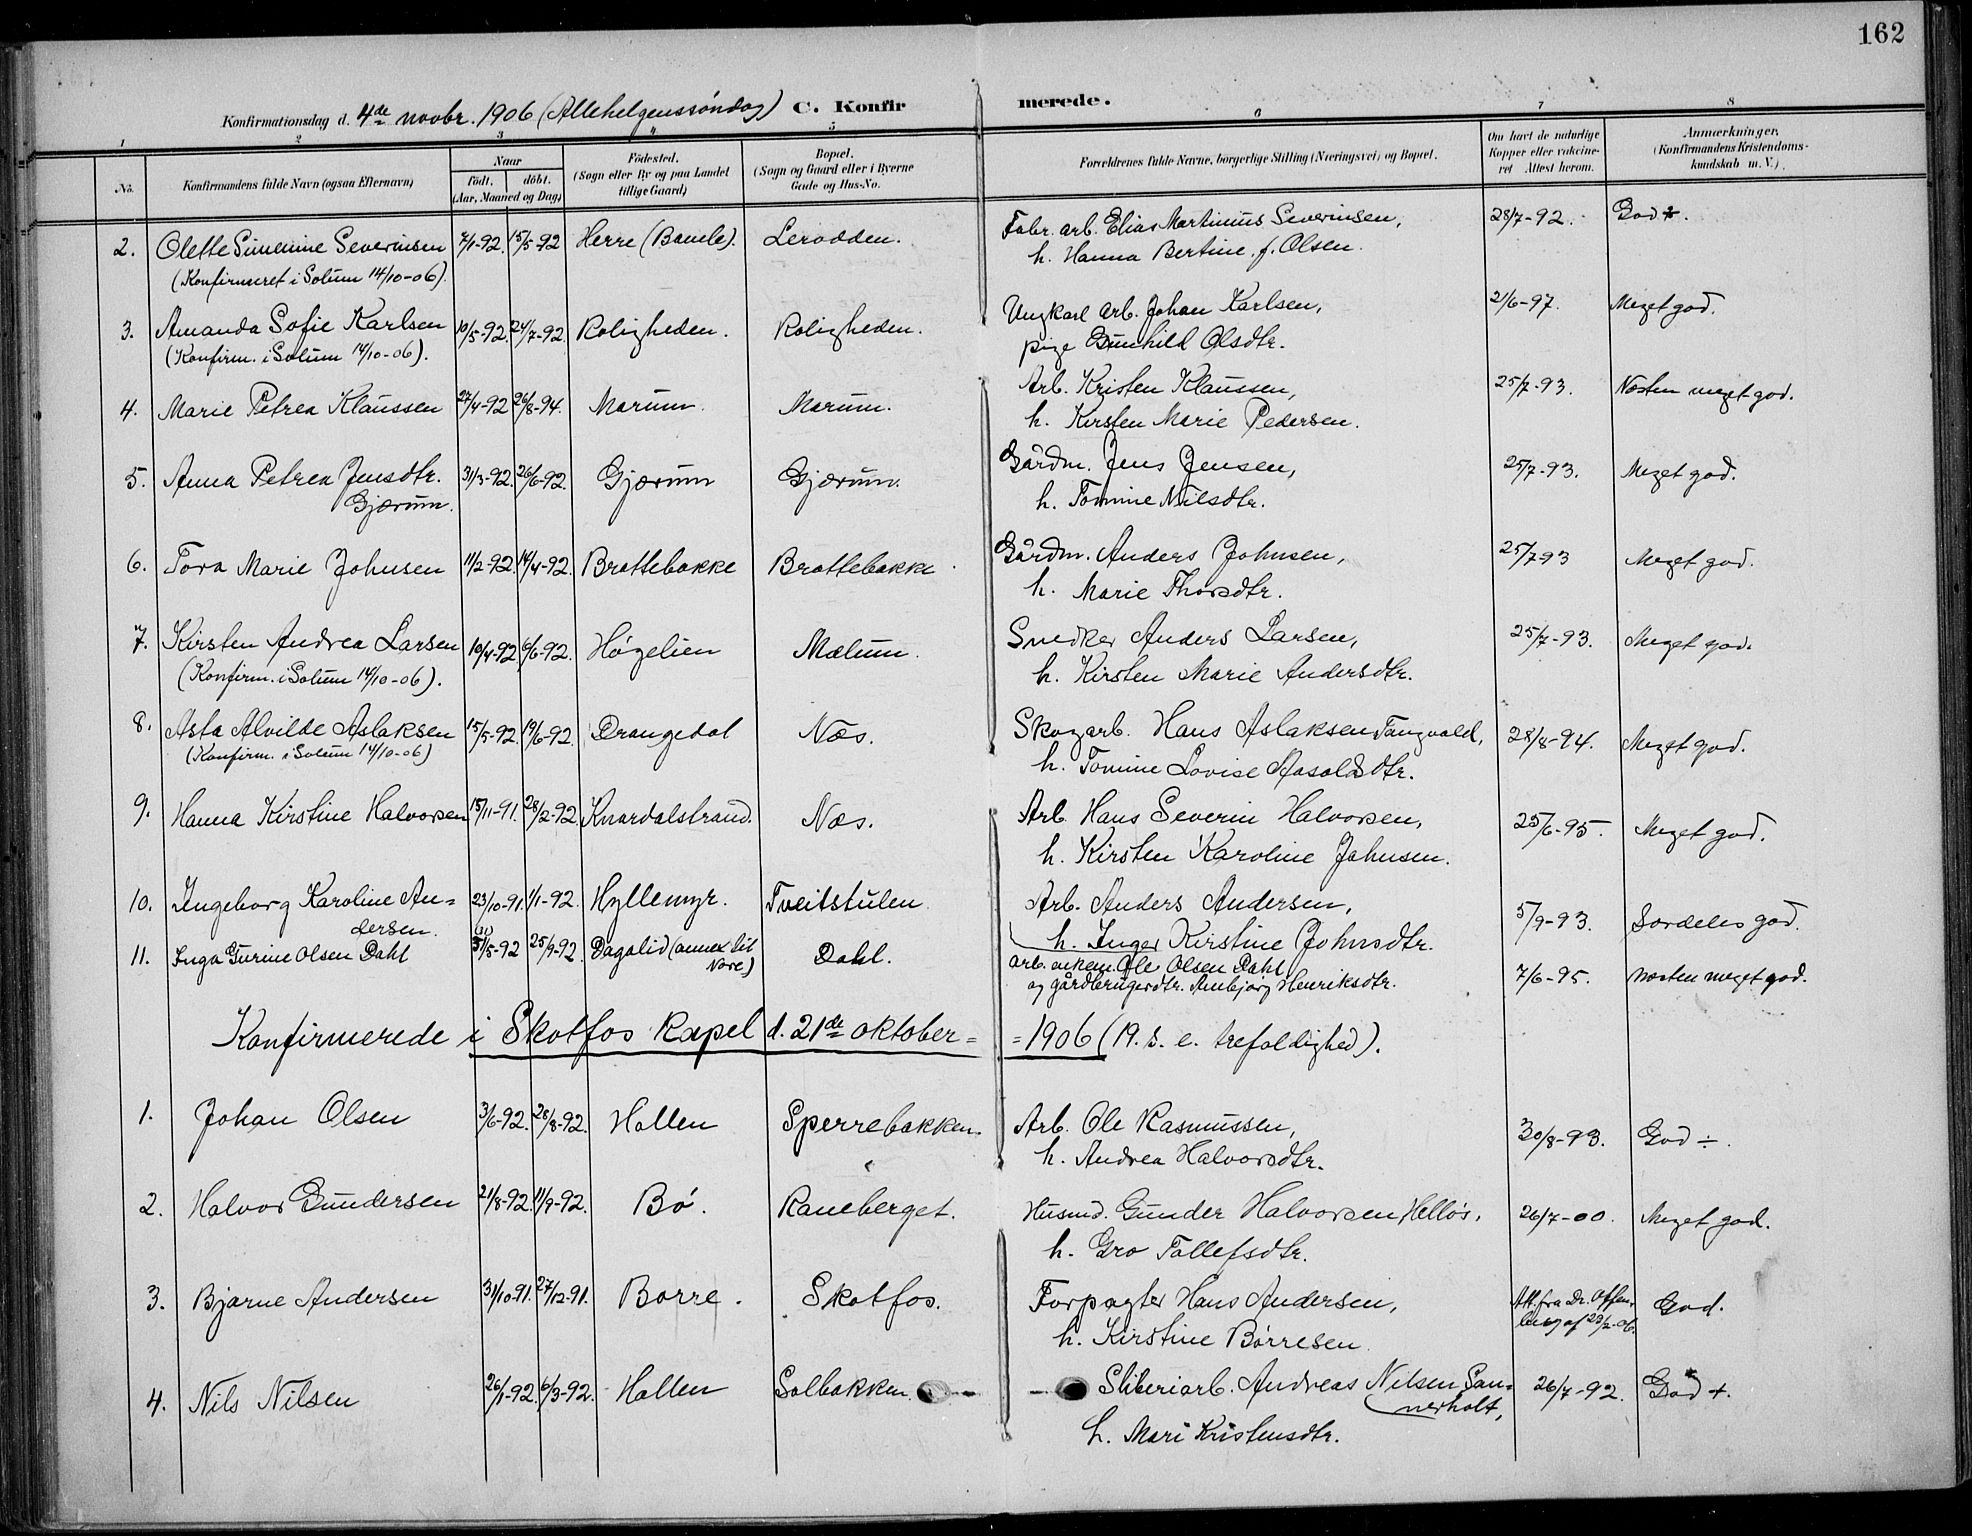 162
Konfirmationsdag d. 4de novbr. 1906 (Allehelgenssøndag) C. Konfirmerede.
1 2 3 4 5 6 7 8
No. Konfirmandens fulde Navn (ogsaa Efternavn) Naar født. døbt. (Aar, Maaned og Dag) Fødested. (Sogn eller By og paa Landet tillige Gaard) Bopæl. (Sogn og Gaard eller i Byerne Gade og Hus-No. Forældrenes fulde Navne, borgerlige Stilling (Næringsvei) og Bopæl. Om havt de naturlige Kopper eller vaccineret Attest herom. Anmærkninger. (Konfirmandens Kristendomskundskab m. V.).
2. Olette Simenine Severinsen 7/1-92. 15/5-92 Herre (Bamle). Lerodden. Fabr. arb. Elias Martinius Severinsen, 28/7-92. God +.
(Konfirmeret i Solum 14/10-06). h. Hanna Bertine f. Olsen.
3. Amanda Sofie Karlsen 10/5-92. 24/7-92. Roligheden. Roligheden. Ungkarl arb. Johan Karlsen, 21/6-97. Meget god.
(Konfirm. i Solum 14/10-06). pige Gunhild Olsdtr.
4. Marie Petrea Klaussen 27/4-92 26/8-94. Marum. Marum. Arb. Kristen Klaussen, 25/7-93. Næsten meget god.
h. Kirsten Marie Pedersen.
5. Anna Petrea Jensdtr. 31/3-92. 26/6-92. Gjærum Gjærum. Gårdm. Jens Jensen, 25/7-93. Meget god.
Gjærum. h. Tomine Nilsdtr.
6. Tora Marie Johnsen 11/2-92. 14/4-92. Brattebakke Brattebakke. Gårdm. Anders Johnsen, 25/7-93 Meget god.
h. Marie Thorsdtr.
7. Kirsten Andrea Larsen 10/4-92 6/6-92. Høgelien Mælum. Snedker Anders Larsen, 25/7-93. Meget god.
(Konfirm. i Solum 14/10-06). h. Kirsten Marie Andersdtr.
8. Asta Alvilde Aslaksen 15/5-92. 19/6-92. Drangedal Næs. Skogarb. Hans Aslaksen Tangvald, 28/8-94. Meget god.
(Konfirm. i Solum 14/10-06) h. Tomine Lovise Aasoldsdtr.
9. Hanna Kirstine Halvorsen 15/11-91. 28/2-92. Knardalstrand. Næs. Arb. Hans Severin Halvorsen, 25/6-95. Meget god.
h. Kirsten Karoline Johnsen.
10. Ingeborg Karoline An= 23/10-91. 1/1-92. Hyllemyr. Tveitstulen. Arb. Anders Andersen, 5/9-93. Særdeles god.
dersen. h. Inger Kirstine Johnsdtr.
11. Inga Gurine Olsen Dahl 31/5-92 25/9-92. Dagalid (annex til Nore) Dahl. arb. enkem. Ole Olsen Dahl 7/6-95. næsten meget god.
og gårdbrugerdtr. Anbjørg Henriksdtr.
Konfirmerede i Skotfos kapel d. 21de oktober= =1906 (19. s. e. trefoldighed).
1. Johan Olsen 3/6-92. 28/8-92. Hollen Sperrebakken. Arb. Ole Rasmussen, 30/8-93. God ÷.
h. Andrea Halvorsdtr.
2. Halvor Gundersen 21/8-92. 11/9-92. Bø. Raneberget. Husmd. Gunder Halvorsen Helløs, 26/7-00. Meget god.
h. Gro Tollefsdtr.
3. Bjarne Andersen 31/10-91. 27/12-91. Borre. Skotfos. Forpagter Hans Andersen, Att. fra Dr. Offen- God.
h. Kirstine Børresen berg af 23/2-06.
4. Nils Nilsen 26/1-92. 6/3-92. Hollen Solbakken Sliberiarb. Andreas Nilsen San= 26/7-92. God +.
nerholt,
h. Mari Kristensdtr.